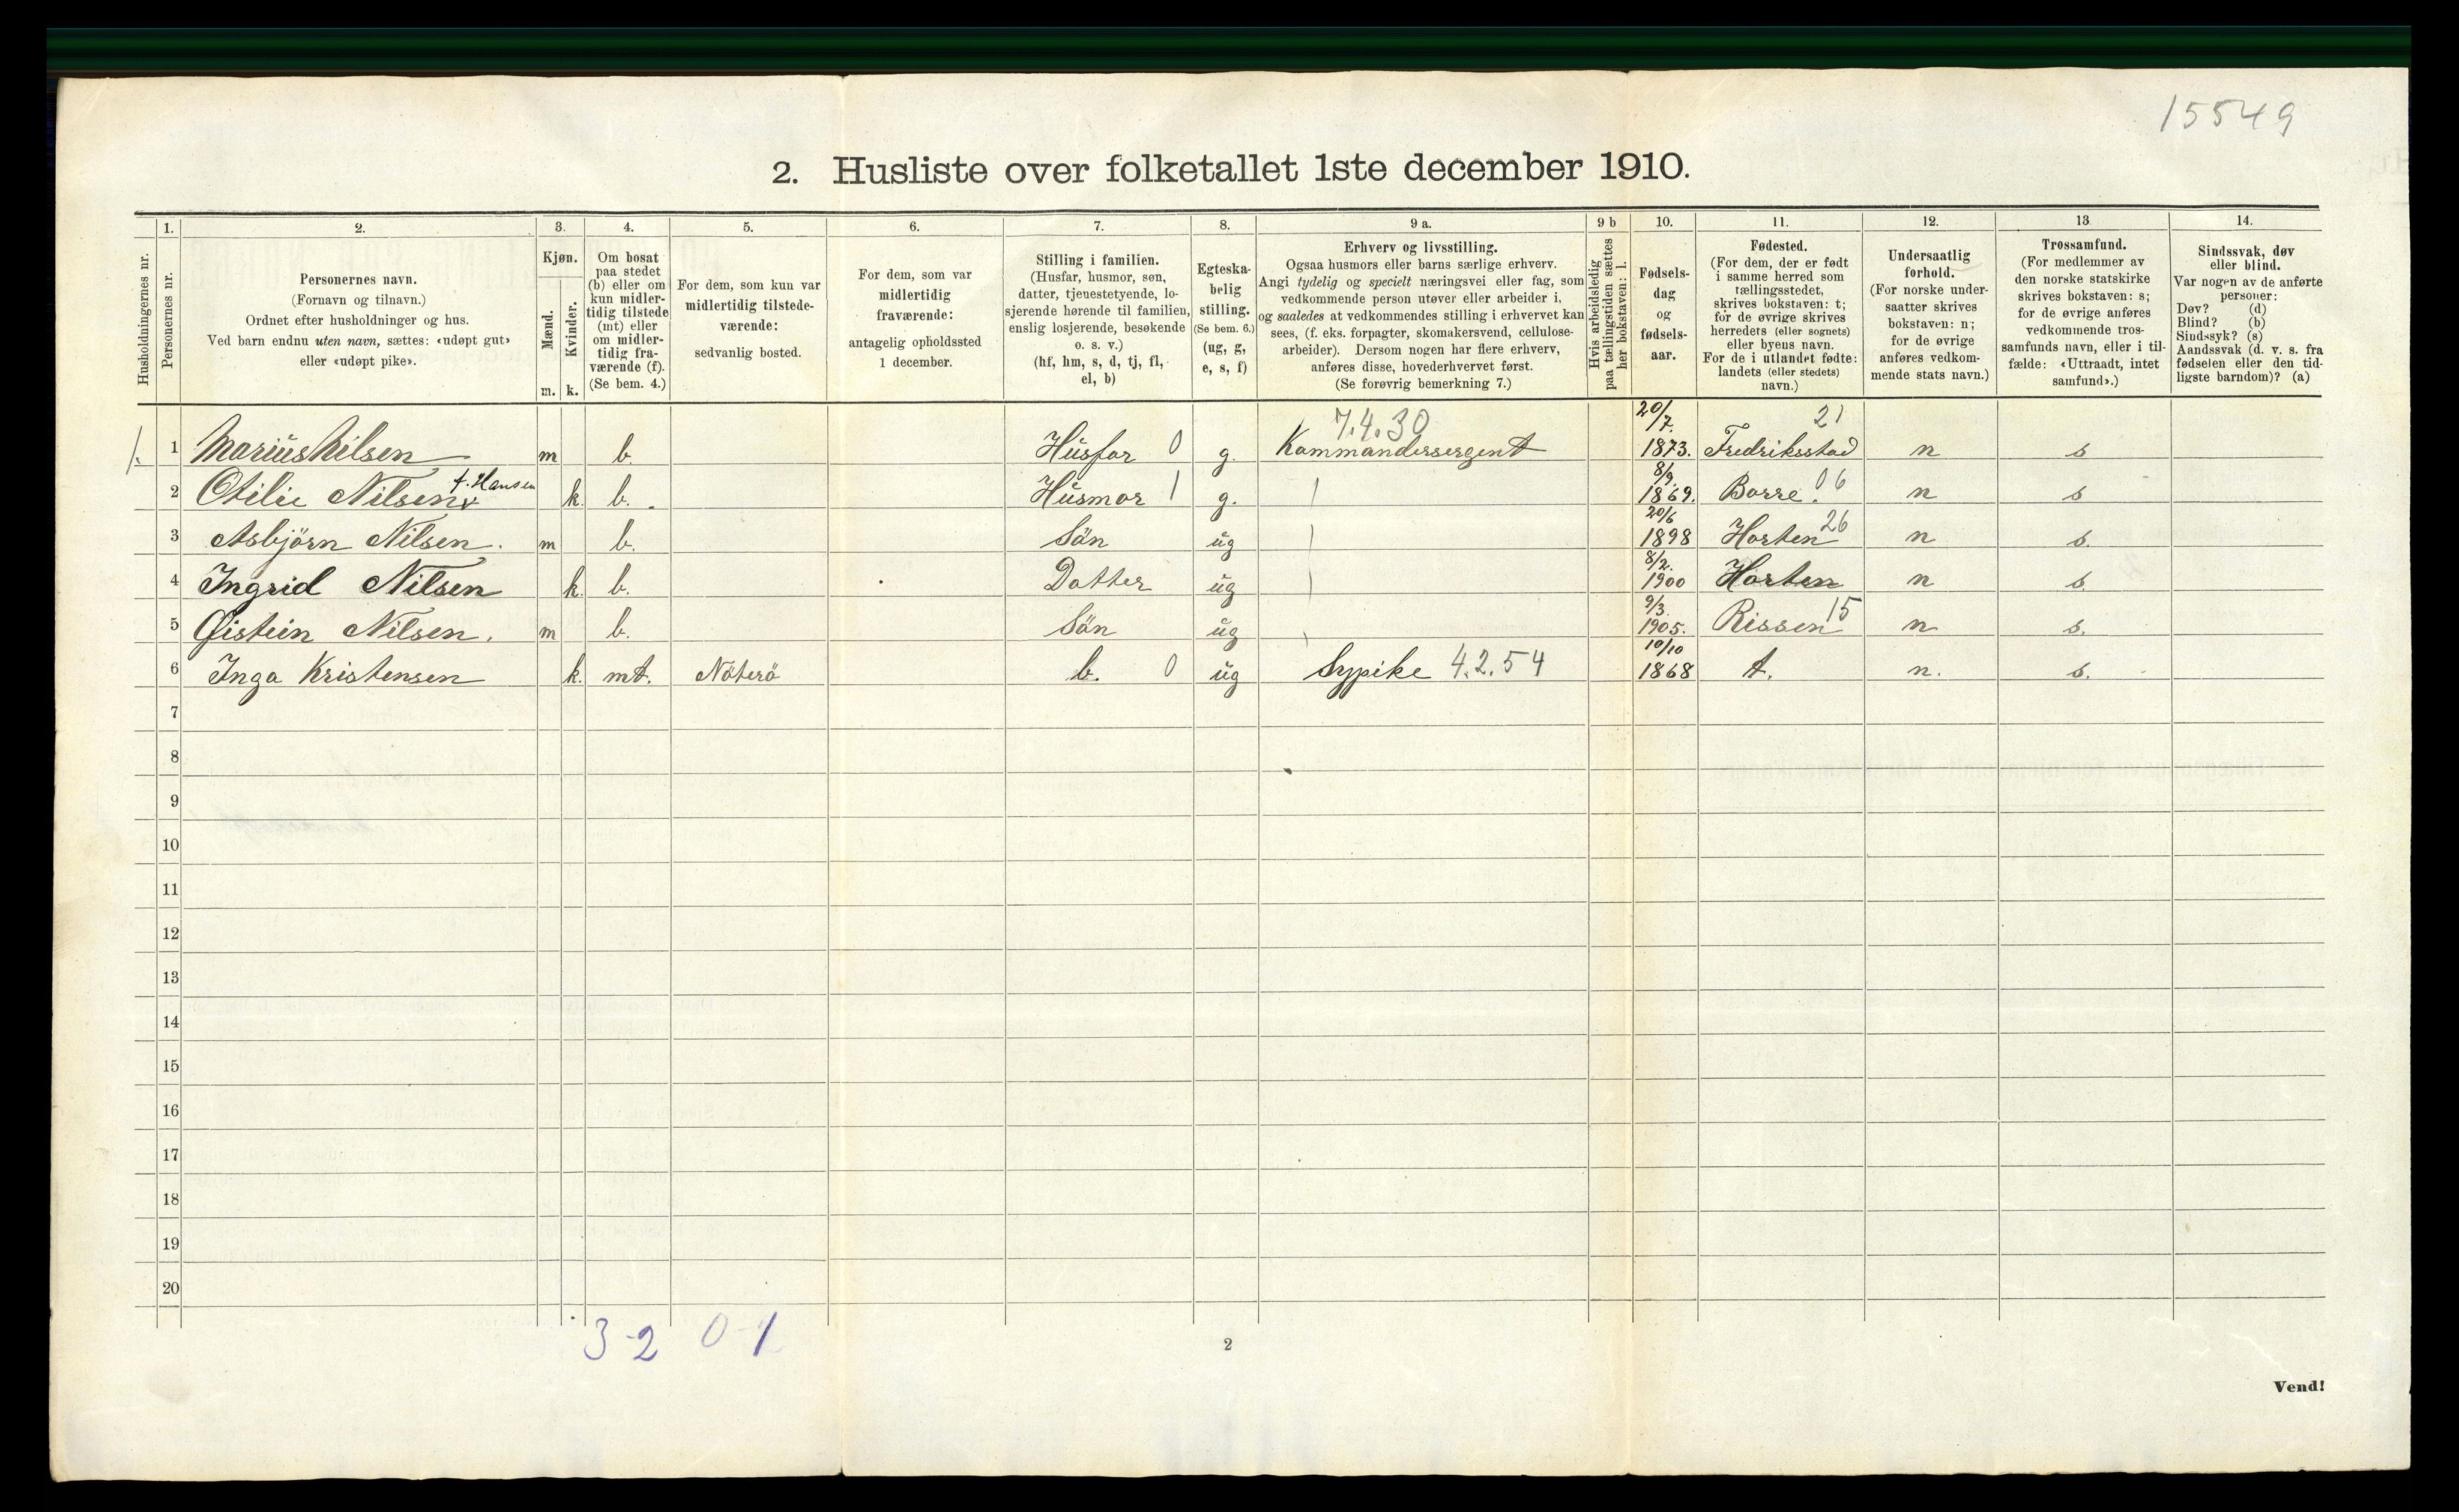 15549
2. Husliste over folketallet 1ste december 1910.
Husholdningernes nr.
1. Personernes nr.
2. Personernes navn.
(Fornavn og tilnavn.)
Ordnet efter husholdninger og hus.
Ved barn endnu uten navn, sættes: «udøpt gut»
eller «udøpt pike».
3. Kjøn.
Mænd. m.
Kvinder. k.
4. Om bosat
paa stedet
(b) eller om
kun midler-
tidig tilstede
(mt) eller
om midler-
tidig fra-
værende (f).
(Se bem. 4.)
5. For dem, som kun var
midlertidig tilstede-
værende:
sedvanlig bosted.
6. For dem, som var
midlertidig
fraværende:
antagelig opholdssted
1 december.
7. Stilling i familien.
(Husfar, husmor, søn,
datter, tjenestetyende, lo-
sjerende hørende til familien,
enslig losjerende, besøkende
o. s. v.)
(hf, hm, s, d, tj, fl,
el, b)
8. Egteska-
belig
stilling.
(Se bem. 6.)
(ug, g,
e, s, f)
9 a. Erhverv og livsstilling.
Ogsaa husmors eller barns særlige erhverv.
Angi tydelig og specielt næringsvei eller fag, som
vedkommende person utøver eller arbeider i,
og saaledes at vedkommendes stilling i erhvervet kan
sees, (f. eks. forpagter, skomakersvend, cellulose-
arbeider). Dersom nogen har flere erhverv,
anføres disse, hovederhvervet først.
(Se forøvrig bemerkning 7.)
9 b Hvis arbeidsledig
paa tællingstiden sættes
her bokstaven: l.
10. Fødsels-
dag
og
fødsels-
aar.
11. Fødested.
(For dem, der er født
i samme herred som
tællingsstedet,
skrives bokstaven: t;
for de øvrige skrives
herredets (eller sognets)
eller byens navn.
For de i utlandet fødte:
landets (eller stedets)
navn.)
12. Undersaatlig
forhold.
(For norske under-
saatter skrives
bokstaven: n;
for de øvrige
anføres vedkom-
mende stats navn.)
13 Trossamfund.
(For medlemmer av
den norske statskirke
skrives bokstaven: s;
for de øvrige anføres
vedkommende tros-
samfunds navn, eller i til-
fælde: «Uttraadt, intet
samfund».)
14. Sindssvak, døv
eller blind.
Var nogen av de anførte
personer:
Døv? (d)
Blind? (b)
Sindssyk? (s)
Aandssvak (d. v. s. fra
fødselen eller den tid-
ligste barndom)? (a)
1. 1 Marius Nilsen m b. Husfar 0 g. 7.4.30 Kommandersergent 20/7. 1873. Fredriksstad 21 n s
2 Otilie Nilsen f. Hansen k. b. Husmor 1 g. 8/9. 1869. Borre. 06 n s
3 Asbjörn Nilsen. m b. Sön ug 20/6 1898 Horten 26 n s.
4 Ingrid Nilsen k. b. Datter ug 8/2. 1900 Horten n s.
5 Øistein Nilsen. m b. Sön ug 9/3. 1905. Rissen 15 n s.
6 Inga Kristensen k. mt. Nöterö b. 0 ug Sypike 4.2.54 10/10 1868 t. n. s.
7
8
9
10
11
12
13
14
15
16
17
18
19
20
3-2 0-1
2
Vend!